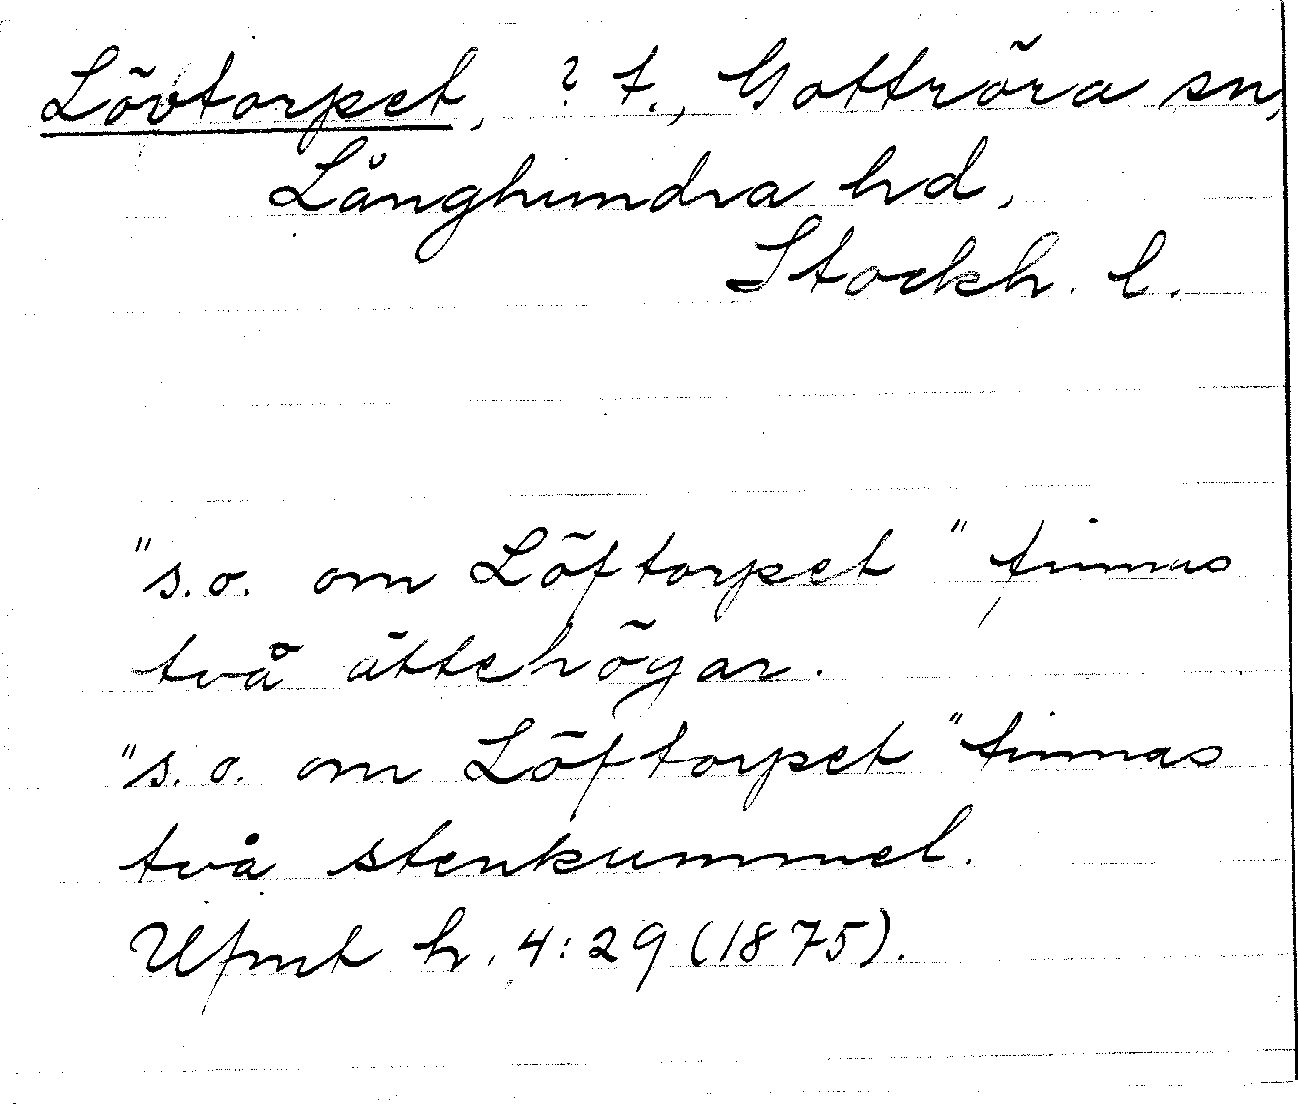 Lövtorpet, ? t., Gottröra sn,
Långhundra hd,
Stockh. l.
"s.o. om Löftorpet" finnas
två ättehögar.
"s.o. om Löftorpet" finnas
två stenkummel.
Ufmt h. 4:29 (1875).